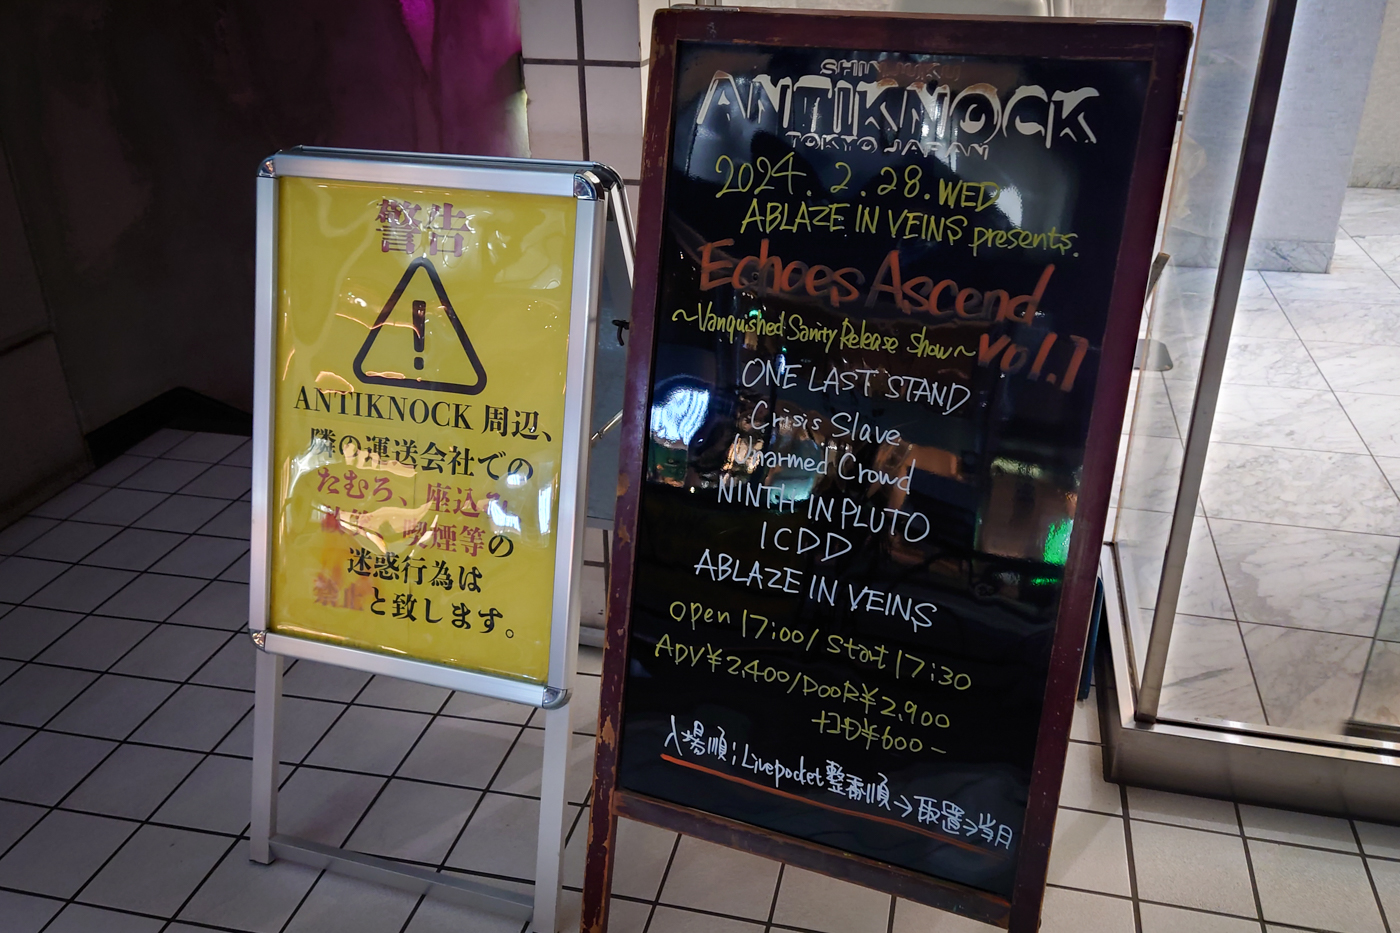 警告
ANTIKNOCK 周辺、
隣の運送会社での
たむろ、座込み、
飲食、喫煙等の
迷惑行為は
禁止と致します。
ANTIKNOCK
TOKYO JAPAN
2024.2.28.WED
ABLAZE IN VEINS presents.
Echoes Ascend
vol.1
~Vanquished Sanity Release Show~
ONE LAST STAND
Crisis Slave
Unarmed Crowd
NINTH IN PLUTO
ICDD
ABLAZE IN VEINS
Open 17:00/ Start 17:30
ADV¥2,400/DOOR¥2,900
+1D¥600-
入場順;Livepocket整番順→取置→当日